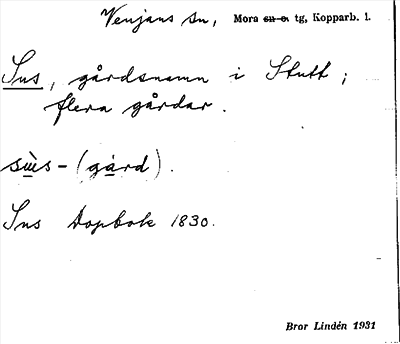 Venjans sn, Mora su o. tg, Kopparb. l.
Sus, gårdsnamn i Stutt ;
flera gårdar.
sùs- (gård).
Sus Dopbok 1830.
Bror Lindén 1931